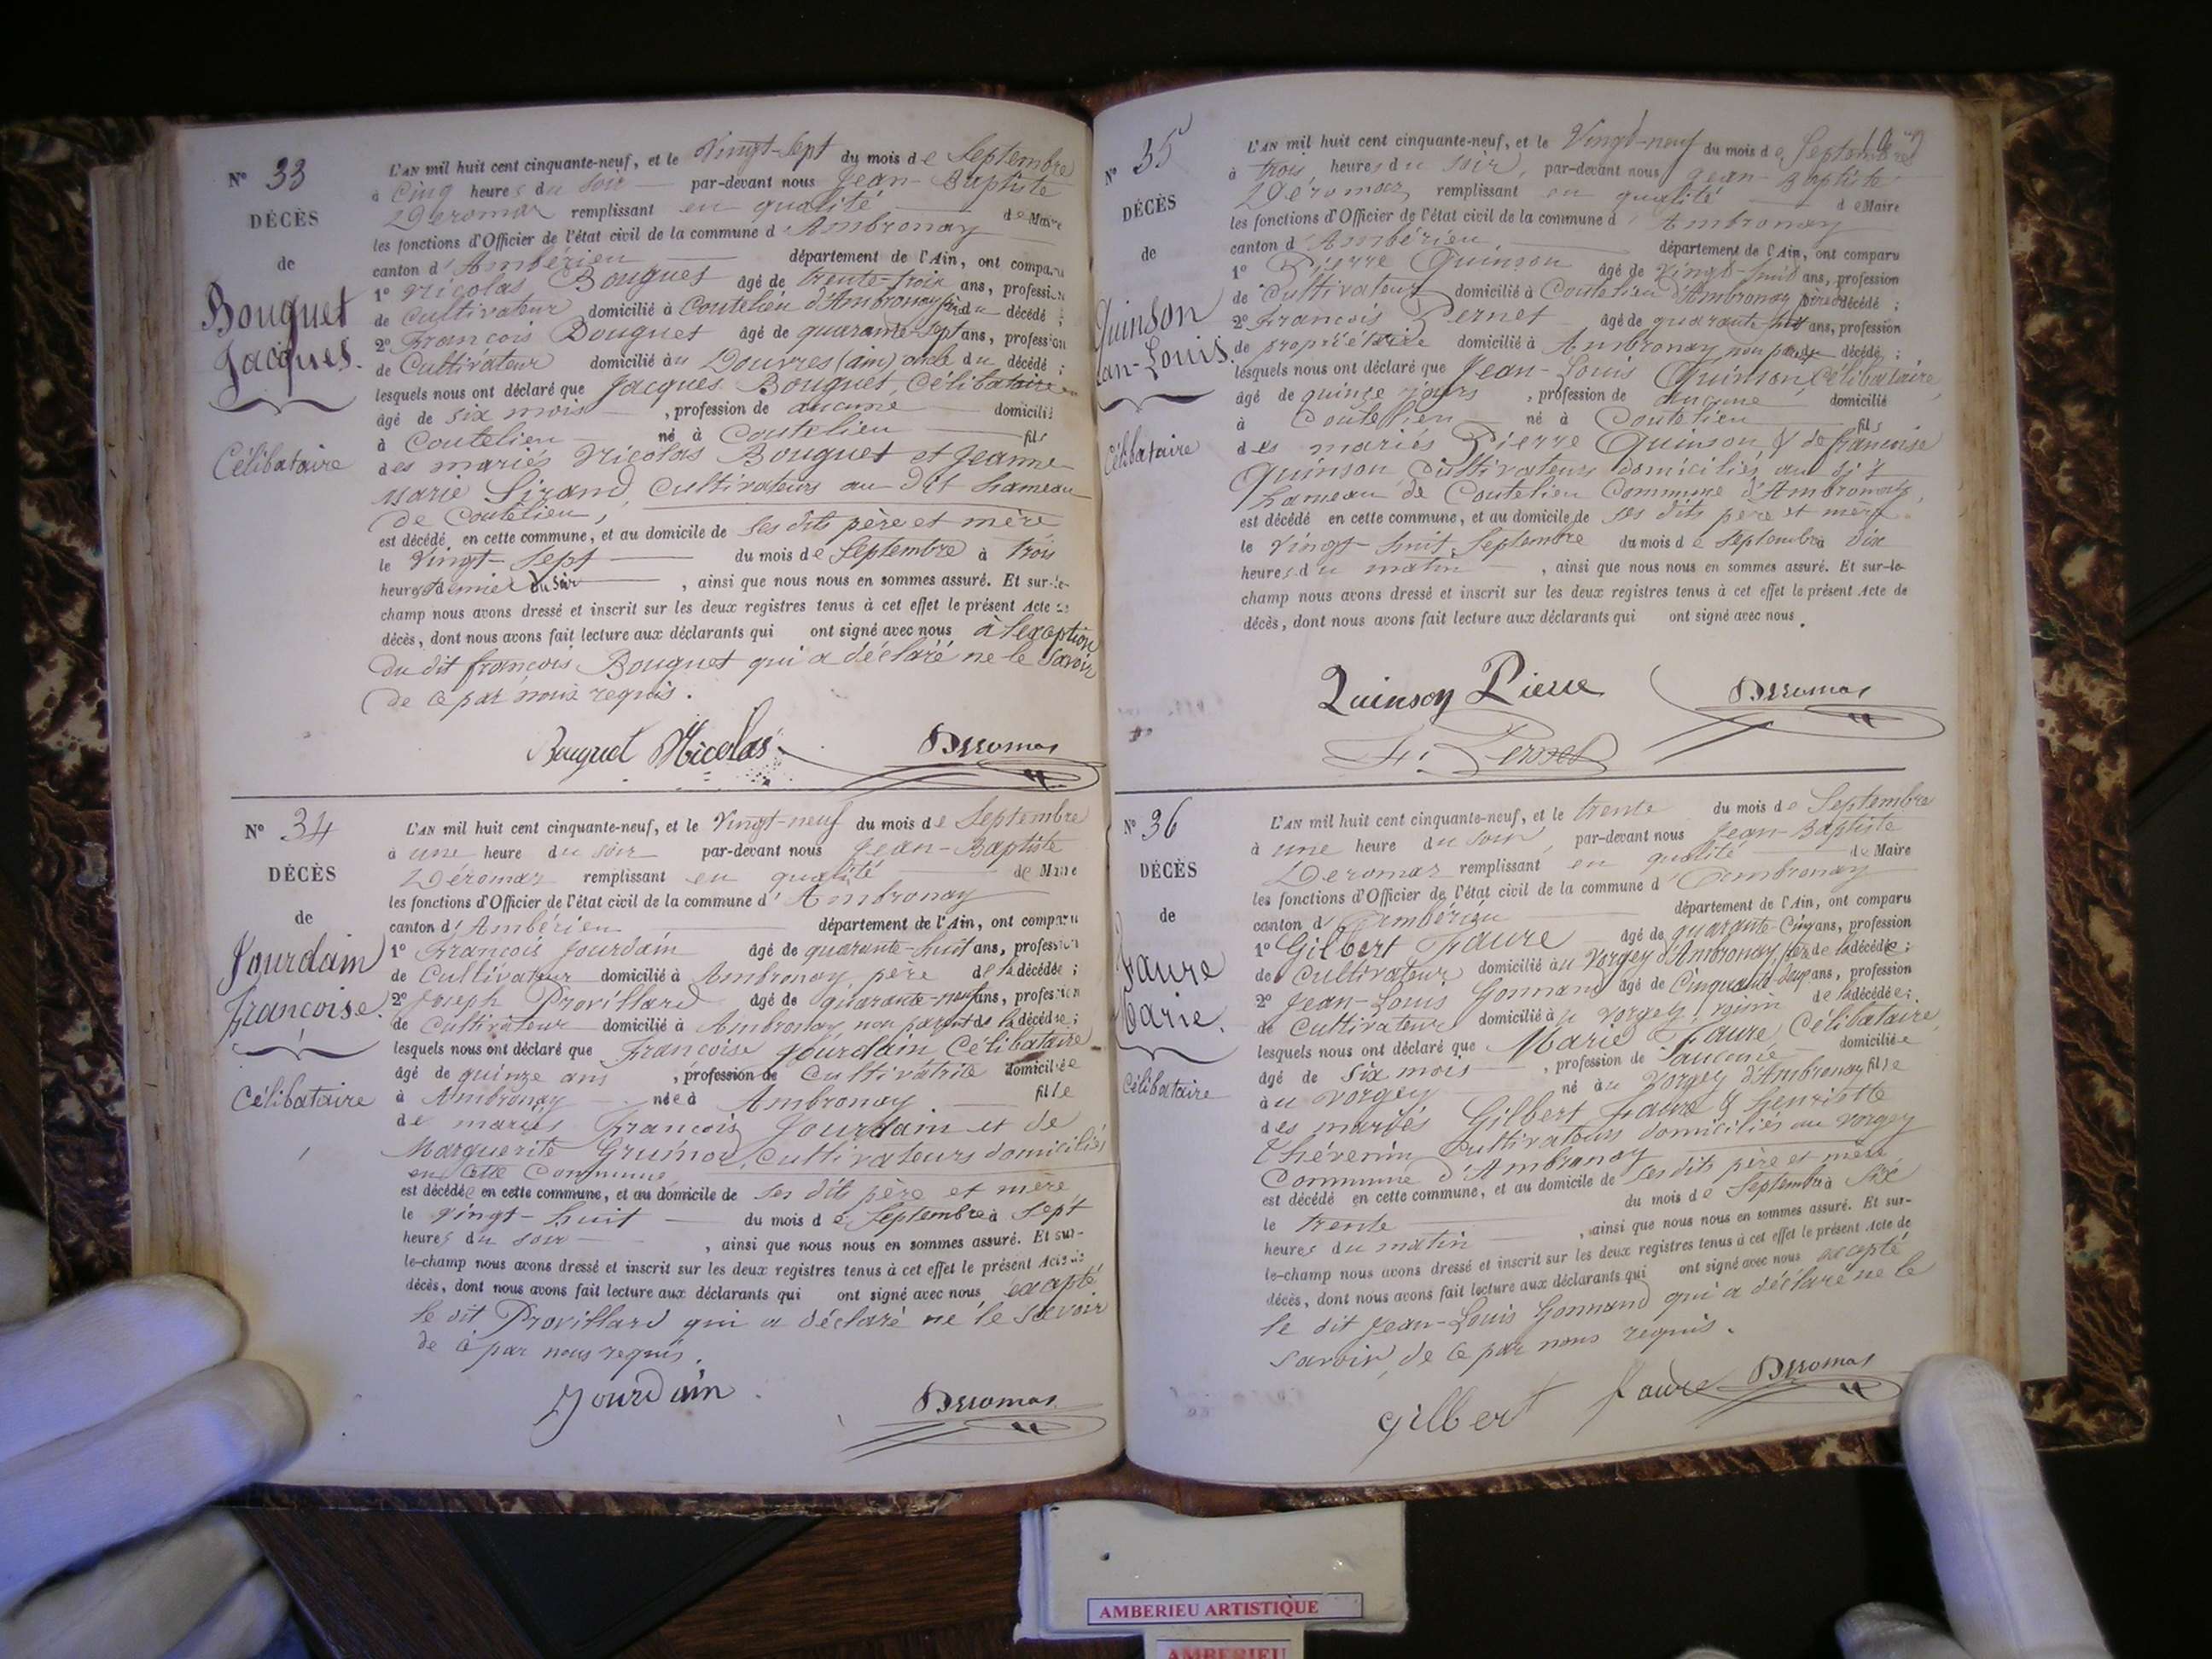 Nº 33
DÉCÈS
de
Bouquet
Jacques.
Célibataire
L'AN mil huit cent cinquante-neuf, et le Vingt-Sept du mois de Septembre
à Cinq heures du Soir par-devant nous Jean-Baptiste
Deromas remplissant en qualité de Maire
les fonctions d'Officier de l'état civil de la commune d'Ambronay
canton d'Ambérieu département de l'Ain, ont comparu
1º Nicolas Bouquet âgé de trente-trois ans, profession
de Cultivateur domicilié à Coutelieu d'Ambronay père du décédé ;
2º François Bouquet âgé de quarante-sept ans, profession
de Cultivateur domicilié à Douvres (ain) oncle du décédé ;
lesquels nous ont déclaré que Jacques Bouquet, Célibataire
âgé de six mois , profession de aucune domicilié
à Coutelieu né à Coutelieu fils
des mariés Nicolas Bouquet et Jeanne
Marie Sirand, Cultivateurs au dit hameau
de Coutelieu,
est décédé en cette commune, et au domicile de ses dits père et mère
le Vingt-Sept du mois de Septembre à trois
heures demie du Soir , ainsi que nous nous en sommes assuré. Et sur-le-
champ nous avons dressé et inscrit sur les deux registres tenus à cet effet le présent Acte de
décès, dont nous avons fait lecture aux déclarants qui ont signé avec nous à l'exception
du dit françois Bouquet qui a déclaré ne le Savoir
de ce par nous requis.
Bouquet Nicolas Deromas
Nº 34
DÉCÈS
de
Jourdain
Françoise.
Célibataire
L'AN mil huit cent cinquante-neuf, et le Vingt-neuf du mois de Septembre
à une heure du Soir par-devant nous Jean-Baptiste
Deromas remplissant en qualité de Maire
les fonctions d'Officier de l'état civil de la commune d'Ambronay
canton d'Ambérieu département de l'Ain, ont comparu
1º François Jourdain âgé de quarante-huit ans, profession
de Cultivateur domicilié à Ambronay, père de la décédée ;
2º Joseph Provillard âgé de quarante-neuf ans, profession
de Cultivateur domicilié à Ambronay, non parent de la décédée ;
lesquels nous ont déclaré que Françoise Jourdain Célibataire
âgé de quinze ans , profession de Cultivatrice domiciliée
à Ambronay née à Ambronay fille
de mariés François Jourdain et de
Marguerite cultivateurs domiciliés
en cette Commune
est décédée en cette commune, et au domicile de ses dits père et mère
le Vingt-huit du mois de Septembre à Sept
heures du Soir , ainsi que nous nous en sommes assuré. Et sur-
le-champ nous avons dressé et inscrit sur les deux registres tenus à cet effet le présent Acte de
décès, dont nous avons fait lecture aux déclarants qui ont signé avec nous excepté
le dit Provillard qui a déclaré ne le Savoir
de ce par nous requis.
Jourdain Deromas
Nº 35
DÉCÈS
de
Quinson
an-Louis.
Célibataire
L'AN mil huit cent cinquante-neuf, et le Vingt-neuf du mois de Septembre
à trois heures du soir, par-devant nous Jean-Baptiste
Deromas remplissant en qualité de Maire
les fonctions d'Officier de l'état civil de la commune d'Ambronay
canton d'Ambérieu département de l'Ain, ont comparu
1º Pierre Quinson âgé de vingt-huit ans, profession
de Cultivateur domicilié à Coutelieu d'Ambronay père du décédé ;
2º François Pernet âgé de quarante ans, profession
de propriétaire domicilié à Ambronay non parent du décédé ;
lesquels nous ont déclaré que Jean-Louis Quinson Célibataire,
âgé de quinze jours , profession de aucune domicilié
à Coutelieu né à Coutelieu fils
des mariés Pierre Quinson & de françoise
Quinson Cultivateurs domiciliés au dit
hameau de Coutelieu Commune d'Ambronay,
est décédé en cette commune, et au domicile de ses dits père et mère
le vingt-huit Septembre du mois de Septembre à dix
heures du matin , ainsi que nous nous en sommes assuré. Et sur-le-
champ nous avons dressé et inscrit sur les deux registres tenus à cet effet le présent Acte de
décès, dont nous avons fait lecture aux déclarants qui ont signé avec nous.
Quinson Pierre Deromas
Pernet
Nº 36
DÉCÈS
de
Faure
Marie.
Célibataire
L'AN mil huit cent cinquante-neuf, et le trente du mois de Septembre
à une heure du soir, par-devant nous Jean-Baptiste
Deromas remplissant en qualité de Maire
les fonctions d'Officier de l'état civil de la commune d'Ambronay
canton d'Ambérieu département de l'Ain, ont comparu
1º Gilbert Faure âgé de quarante-Cinq ans, profession
de Cultivateur domicilié au Vorgey d'Ambronay, père de la décédée ;
2º Jean-Louis Gonnand âgé de Cinquante-deux ans, profession
de Cultivateur domicilié au Vorgey, voisin de la décédée ;
lesquels nous ont déclaré que Marie Faure, Célibataire,
âgé de Six mois , profession de aucune domiciliée
au Vorgey né au Vorgey d'Ambronay fille
des mariés Gilbert Faure & henriette
Thévenin Cultivateurs domiciliés au Vorgey
Commune d'Ambronay
est décédé en cette commune, et au domicile de ses dits père et mère
le trente du mois de Septembre à Six
heures du matin , ainsi que nous nous en sommes assuré. Et sur-
le-champ nous avons dressé et inscrit sur les deux registres tenus à cet effet le présent Acte de
décès, dont nous avons fait lecture aux déclarants qui ont signé avec nous excepté
le dit Jean-Louis Gonnand qui a déclaré ne le
savoir, de ce par nous requis.
gilbert faure Deromas
AMBERIEU ARTISTIQUE
AMBERIEU